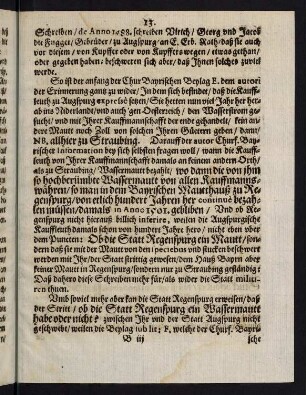 13.
Schreiben / de Anno 1498. schreiben Vlrich / Georg vnd Jacob
die Fugger / Gebrüder / zu Augspurg an E. Erb. Rath / daß sie auch
vor diesem / von Kupffer oder von Kupffers wegen / etwas gethan /
oder gegeben haben / beschweren sich aber / daß Ihnen solches zuviel
werde.
So ist der anfang der Chur Bayrischen Beylag E. dem autori
der Erinnerung ganz zu wider / In dem sich befindet / daß die Kauff-
leuth zu Augspurg exposè setzen / Sie hetten nun viel Jahr her hera
ab ins Niderland / vnd auch gen Oesterreich / den Wasserstrom ge-
sucht / vnd mit ihrer Kauffmannschafft der ende gehandelt / kein an-
dere Mautt noch Zoll von solchen Ihren Güetern geben / dann /
NB. allhier zu Straubing. Darauff der autor Churf. Bay-
rischer Information bey sich selbsten folgents fragen woll / wann die
Kauffleuth von Ihrer Kauffmannschafft damals an keinem andern Orth /
als zu Straubing / Wassermautt bezahlt / wo dann die von ihm
so hochberümbte Wassermautt von allen Kauffmanns-
währen / so man in dem Bayrischen Mautthauß zu Re-
genspurg / von etlich hundert Jahren her continuè bezah-
len müssen / damals in Anno 1501. gebliben / Vnd ob Re-
genspurg nicht hierauß billich inferire, wann die Augspurgische
Kauffleuth damals schon von vnzehlich hundert Jahrn hero / nicht eben ober
dem Puncten: Ob die Statt Regenspurg ein Mautt / sons
dern daß sie mit der Mautt von den speciebus vnd stucken beschwert
werden mit Ihr / der Statt strittig gewesen / dem Hauß Bayrn aber
feiner Mautt in Regenspurg / sondern nur zu Straubing geständig:
Daß dahero diese Schreiben mehr für / als wider die Statt militi-
ren thuen.
Vmb soviel mehr aber kan die Statt Regenspurg erweisen / daß
der Stritt / ob die Statt Regenspurg ein Wassermautt
habe oder nicht? zwischen Ihr vnd der Statt Augspurg nicht
geschwebt / weilen die Beylag sub lit: F, welche der Churf. Bayri-
B iij
sche